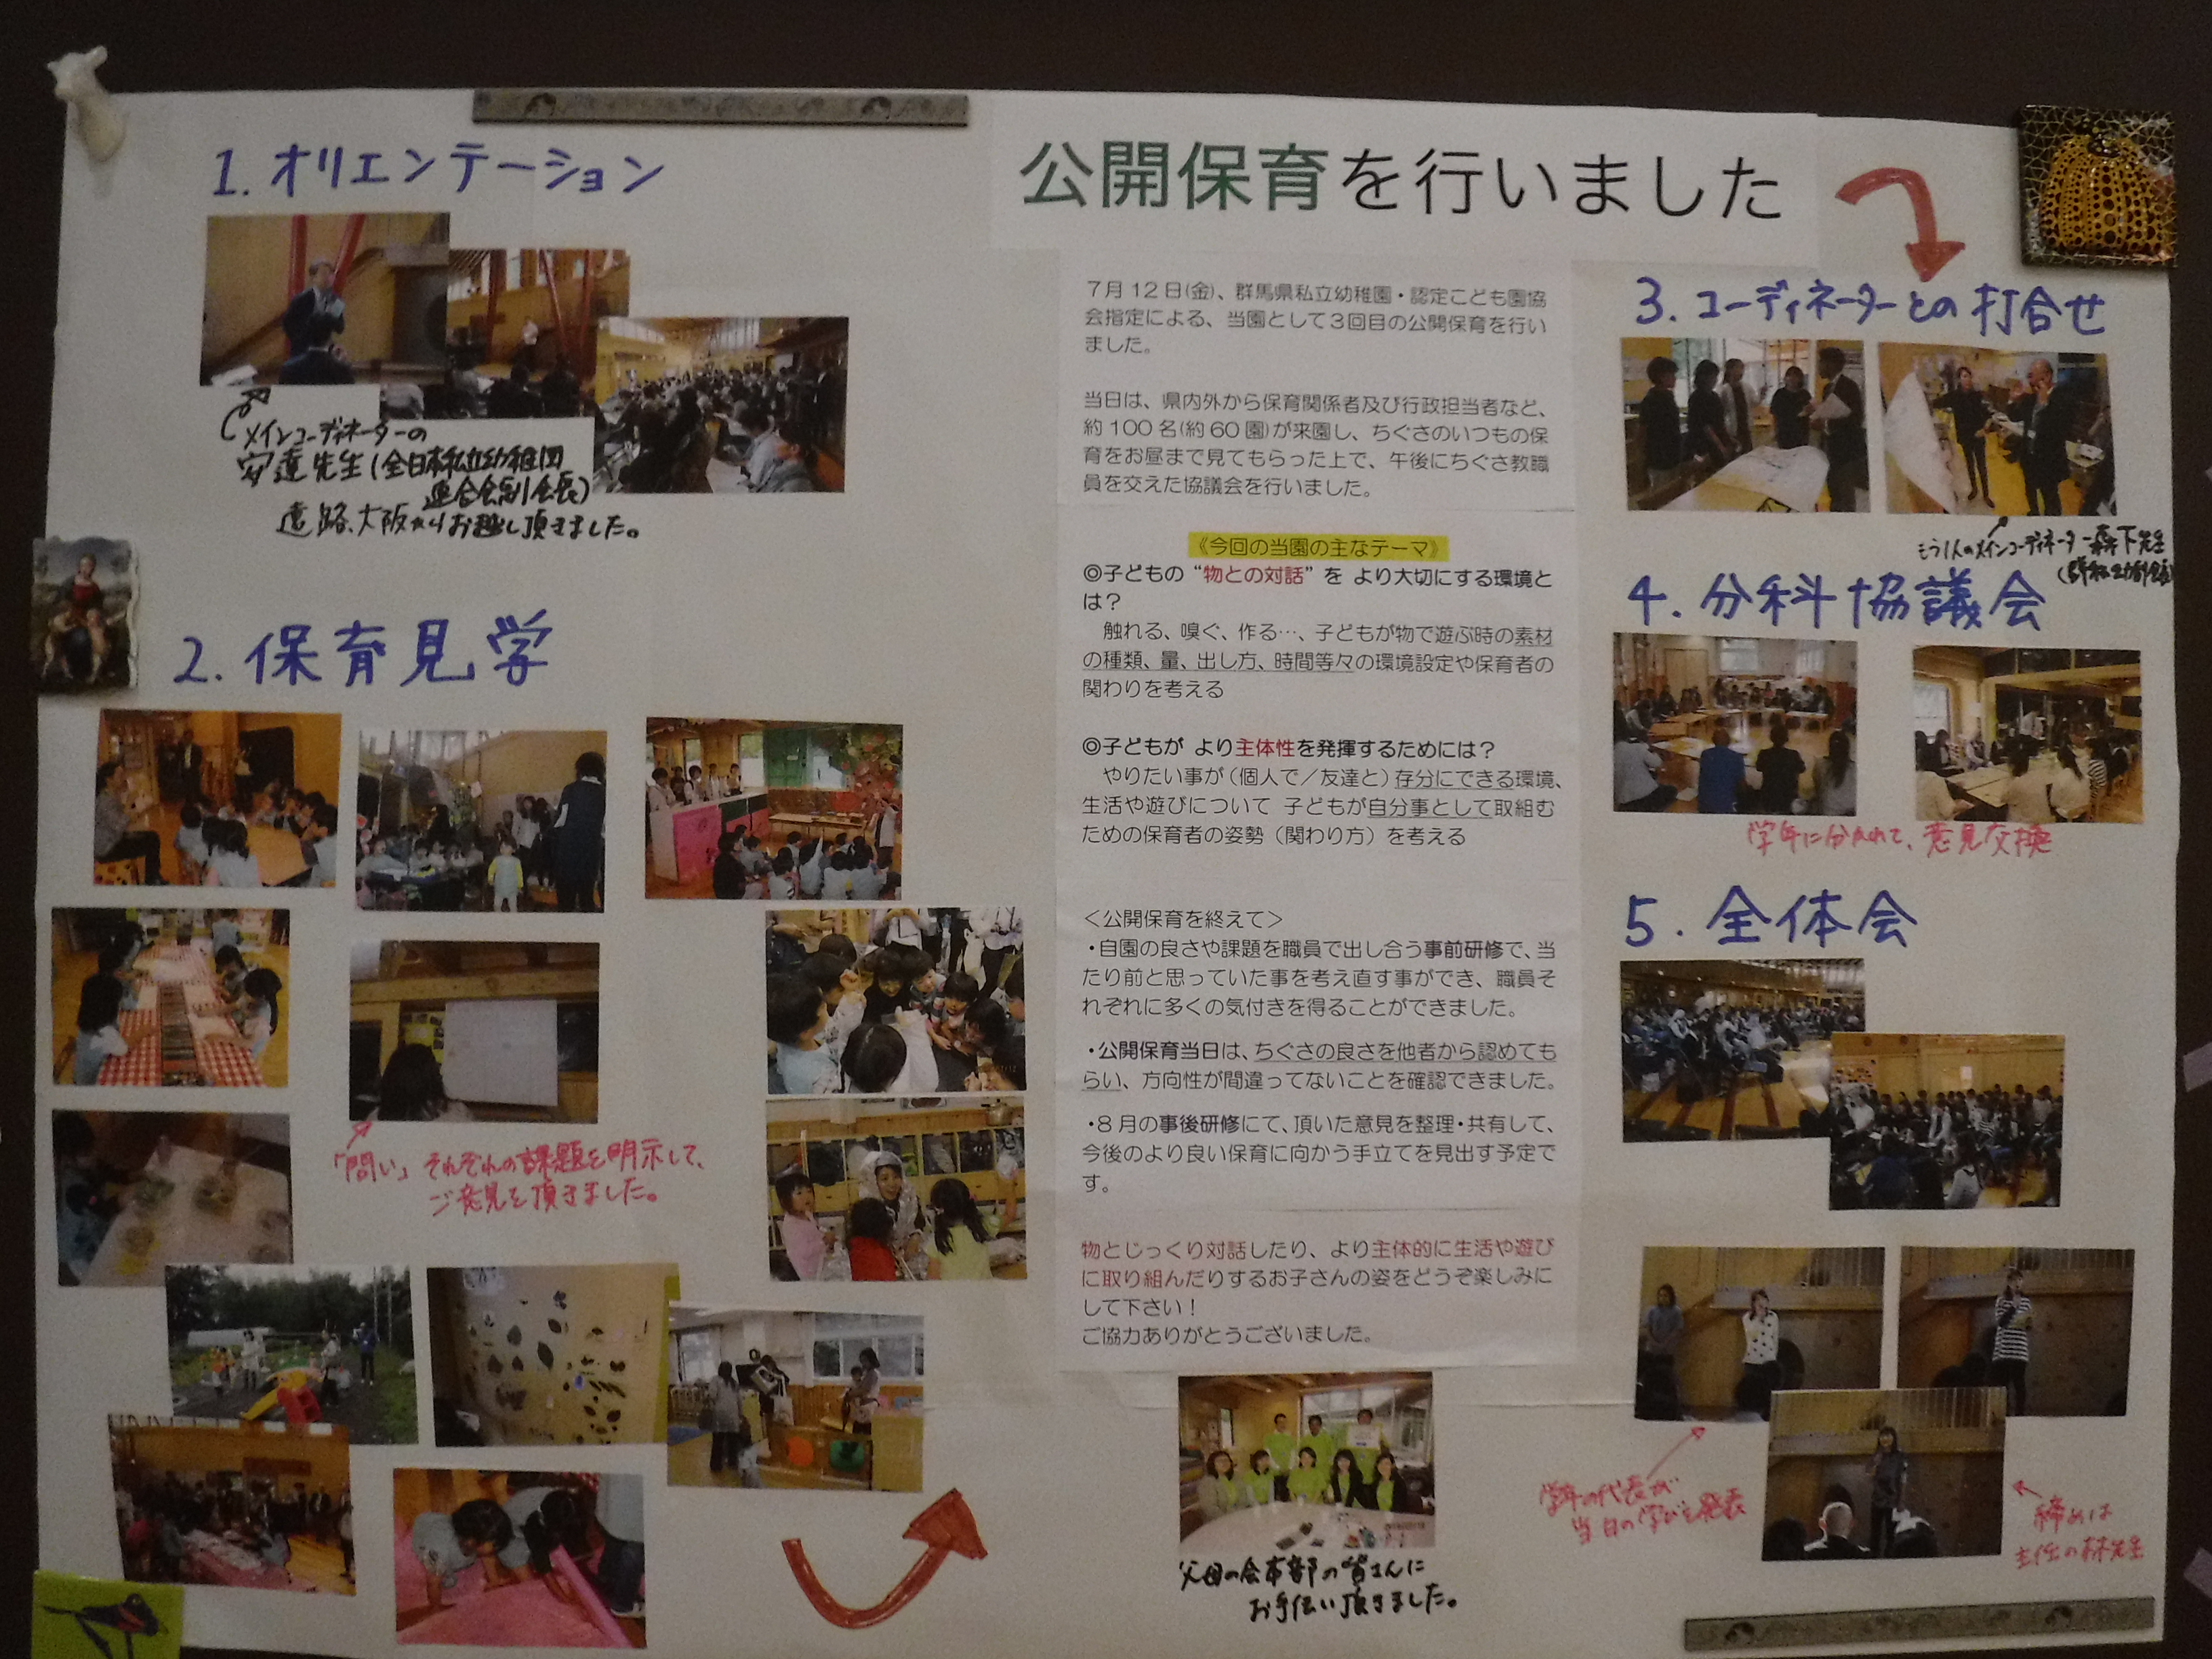 公開保育を行いました
1. オリエンテーション
メインコーディネーターの
安達先生(全日本私立幼稚園
連合会副会長)
遠路、大阪からお越し頂きました。
2. 保育見学
「問い」それぞれの課題を明示して、
ご意見を頂きました。
7月12日(金)、群馬県私立幼稚園・認定こども園協
会指定による、当園として3回目の公開保育を行い
ました。
当日は、県内外から保育関係者及び行政担当者など、
約100名(約60園)が来園し、ちぐさのいつもの保
育をお昼まで見てもらった上で、午後にちぐさ教職
員を交えた協議会を行いました。
《今回の当園の主なテーマ》
◎子どもの “物との対話” を より大切にする環境と
は?
触れる、嗅ぐ、作る…、子どもが物で遊ぶ時の素材
の種類、量、出し方、時間等々の環境設定や保育者の
関わりを考える
◎子どもが より主体性を発揮するためには?
やりたい事が(個人で/友達と)存分にできる環境、
生活や遊びについて 子どもが自分事として取組む
ための保育者の姿勢(関わり方)を考える
<公開保育を終えて>
・自園の良さや課題を職員で出し合う事前研修で、当
たり前と思っていた事を考え直す事ができ、職員そ
れぞれに多くの気付きを得ることができました。
・公開保育当日は、ちぐさの良さを他者から認めても
らい、方向性が間違ってないことを確認できました。
・8月の事後研修にて、頂いた意見を整理・共有して、
今後のより良い保育に向かう手立てを見出す予定で
す。
物とじっくり対話したり、より主体的に生活や遊び
に取り組んだりするお子さんの姿をどうぞ楽しみに
して下さい!
ご協力ありがとうございました。
父母の会本部の皆さんに
お手伝い頂きました。
3. コーディネーターとの打合せ
もう1人のメインコーディネーター森下先生
4. 分科協議会
学年に分かれて、意見交換
5. 全体会
学年の代表が
当日の学びを発表
締めは
主任の林先生